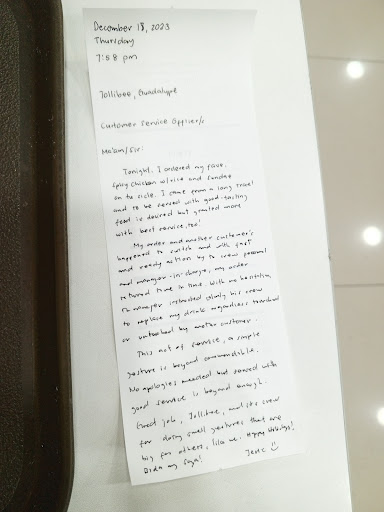 December 18, 2023
Thursday
7:58 pm
Jollibee, Guadalupe
Customer Service Officer/s
Ma'am/Sir:
Tonight, I ordered my fave,
Spicy Chicken w/rice and Sundae
on to side. I came from a long travel
and to be served with good-tasting
food is desired but granted more
with best service, too!
My order and another customer's
happened to switch and with fast
and ready action by to crew personal
and manager-in-charge, my order
returned time in time. With no hesitation,
to manager instructed calmly his crew
to replace my drink regardless touched
or untouched by customer.
This act of service, a simple
gesture is beyond commendable.
No apologies needed but served with
good service is beyond enough.
Great job, Jollibee, and its crew
for doing small gestures that are
big for others, like me. Happy Holidays!
Bida ang saya!